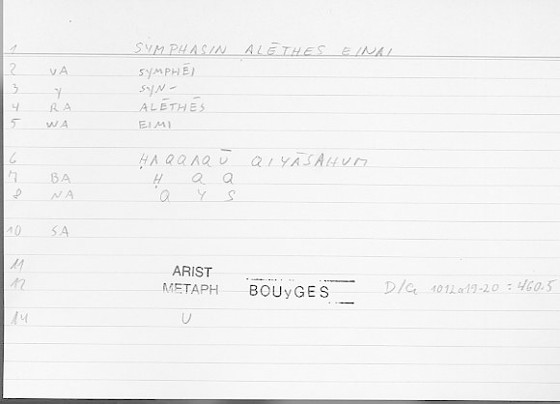 1 SYMPHASIN ALĒTHES EINAI
2 VA SYMPHĒI
3 Y SYN-
4 RA ALĒTHĒS
5 WA EIMI
6 ḤAQQAQŪ QIYĀSAHUM
7 BA Ḥ Q Q
8 NA Q Y S
10 SA
11 ARIST
12 METAPH BOUyGES D/G 1012a19-20 : 460.5
14 U